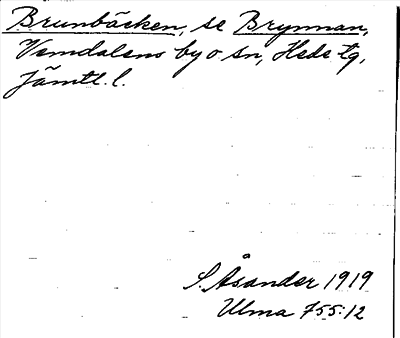 Brunbäcken, se Brynnan,
Vemdalens by o sn, Hede tg,
Jämtl. l.
S. Åsander 1919
Ulma 755:12